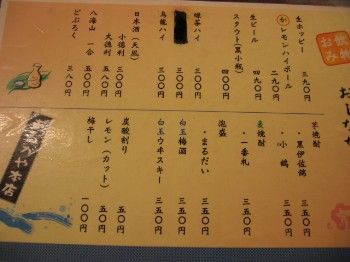 お飲み物
生ホッピー 三九〇円
レモンハイボール 二九〇円
生ビール 四九〇円
スタウト(黒小瓶) 四〇〇円
緑茶ハイ 三〇〇円
烏龍ハイ 三〇〇円
日本酒(天凪)
小徳利 三五〇円
大徳利 五八〇円
八海山 一合 五五〇円
どぶろく 三八〇円
おしながき
芋焼酎
・黒伊佐錦 三五〇円
・小鶴 三五〇円
麦焼酎
・一番札 三五〇円
泡盛
・まるだい 三五〇円
白玉梅酒 三五〇円
白玉ウヰスキー 三五〇円
炭酸割り 五〇円
レモン(カット) 五〇円
梅干し 一〇〇円
本店